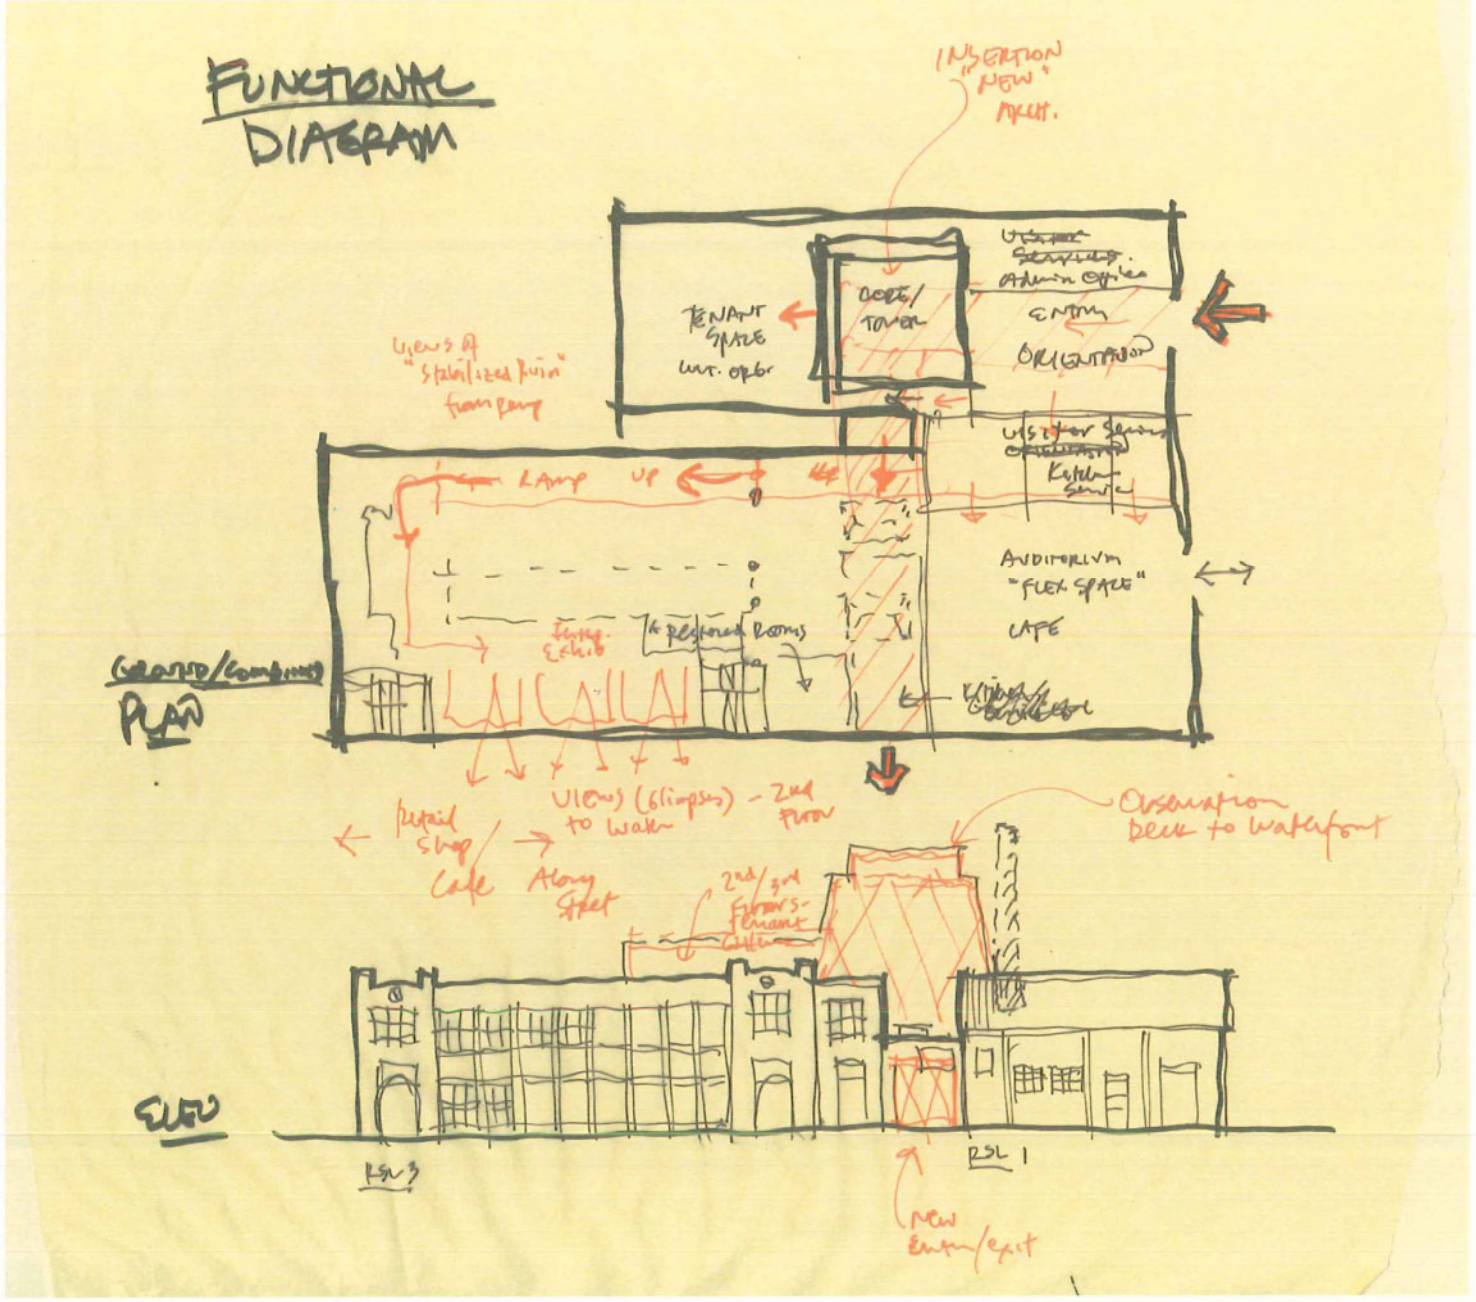 FUNCTIONAL
DIAGRAM
INSERTION
"NEW"
ARCH.
Visitor
Services.
Admin Offices
CORE/
TOWER
ENTRY
ORIENTATION
TENANT
SPACE
CULT. ORG.
Views of
"Stabilized Ruin"
from ramp
Visitor Services
ORIENTATION
Kitchen
Service
RAMP UP
AUDITORIUM
"FLEX SPACE"
CAFE
Temp.
Exhib
Restored Rooms
GROUND/COMBINED
PLAN
Retail
Shop
Cafe
Along
Street
VIEWS (Glimpses) - 2nd
to water Floor
Observation
Deck to Waterfront
2nd/3rd
Floors-
Tenant
ELEV
RSL 3
RSL 1
New
Entry/exit